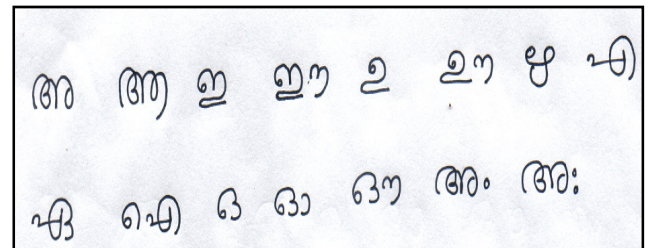 അ ആ ഇ ഈ ഉ ഊ ഋ എ
ഏ ഐ ഒ ഓ ഔ അം അഃ